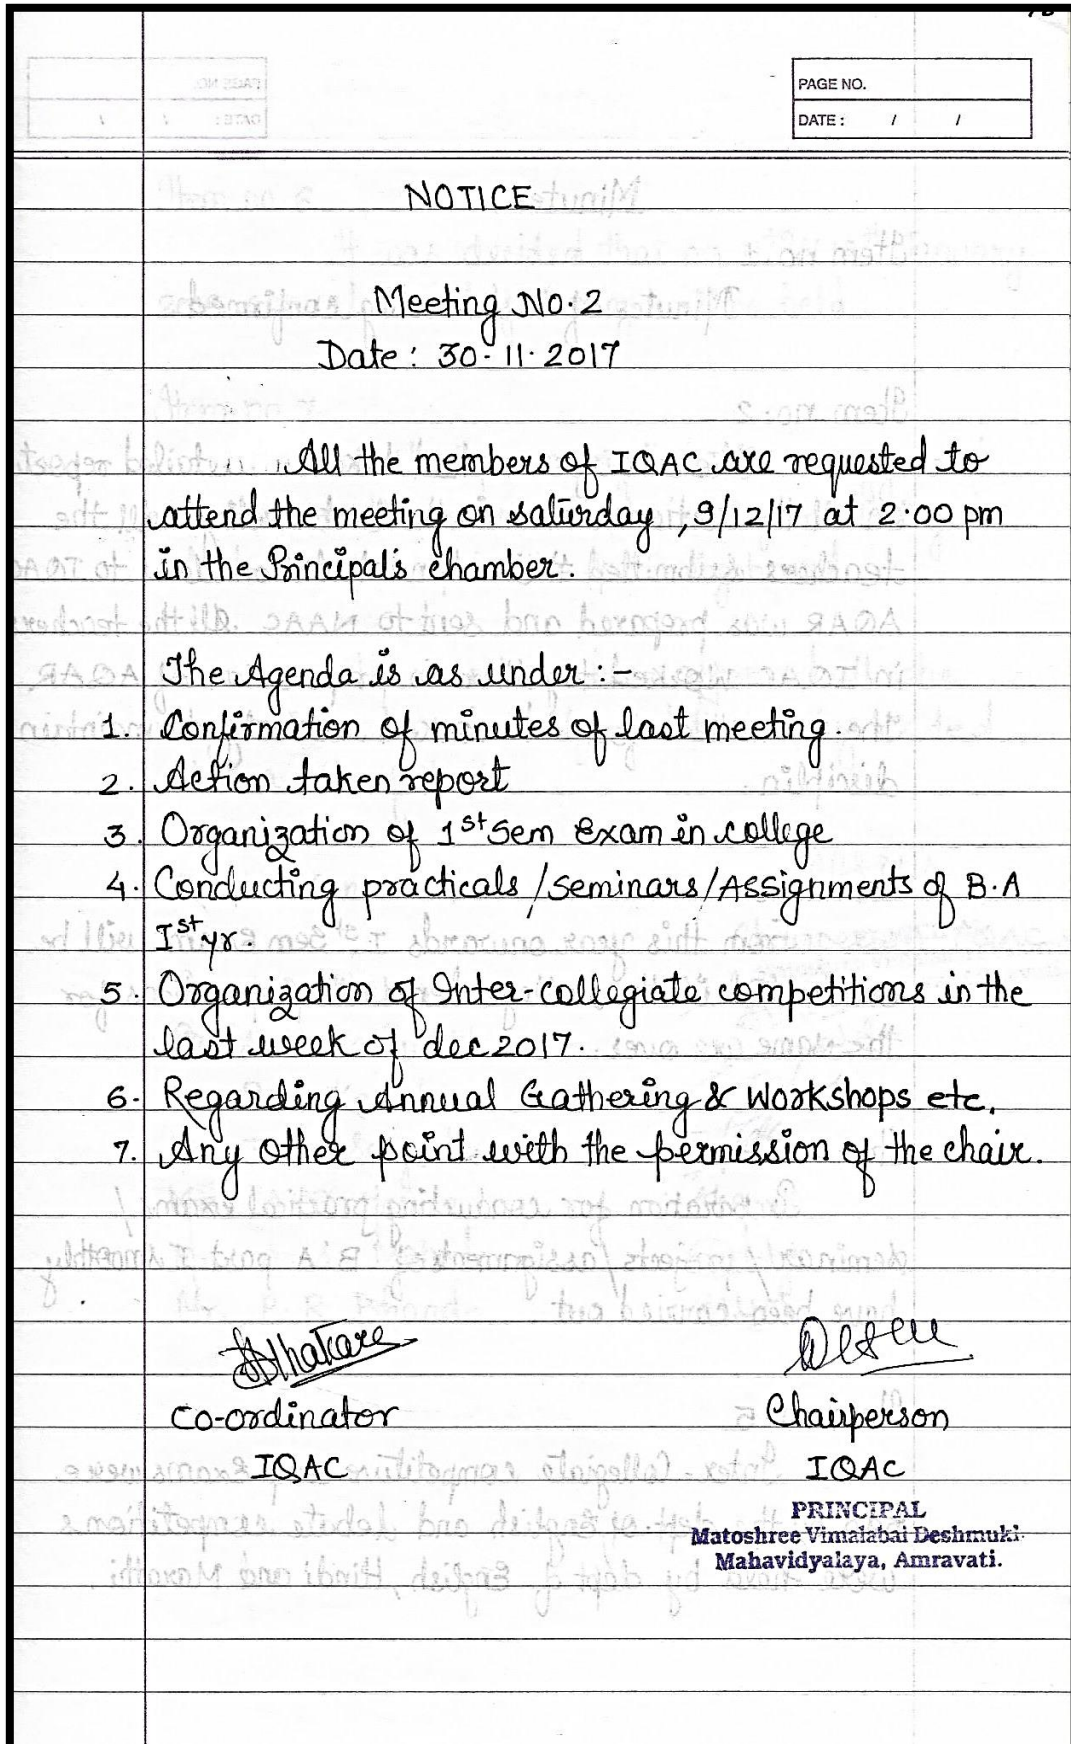 PAGE NO.
DATE : / /
NOTICE
Meeting No. 2
Date : 30-11-2017
All the members of IQAC are requested to
attend the meeting on saturday, 9/12/17 at 2.00 pm
in the Principal's chamber.
The Agenda is as under :-
1. Confirmation of minutes of last meeting.
2. Action taken report
3. Organization of 1st Sem Exam in college
4. Conducting practicals / Seminars / Assignments of B.A
Ist yr.
5. Organization of Inter-collegiate competitions in the
last week of dec 2017.
6. Regarding Annual Gathering & Workshops etc.
7. Any other point with the permission of the chair.
Co-ordinator Chairperson
IQAC IQAC
PRINCIPAL
Matoshree Vimalabai Deshmukh
Mahavidyalaya, Amravati.